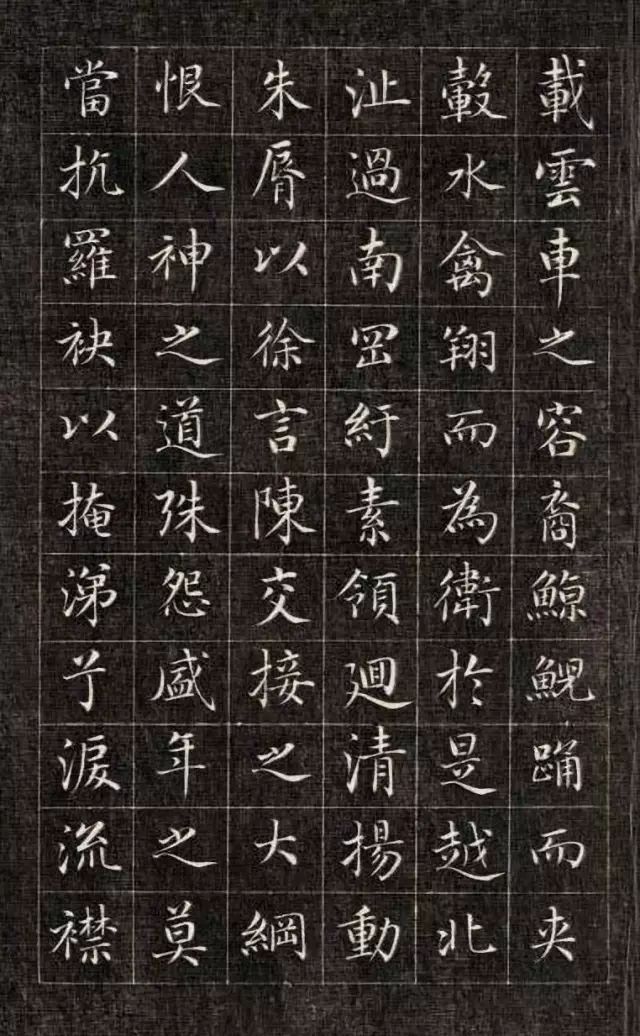 載雲車之容裔鯨鯢踊而夾
轂水禽翔而為衛於是越北
沚過南罡紆素領廻清揚動
朱脣以徐言陳交接之大綱
恨人神之道殊怨盛年之莫
當抗羅袂以掩涕兮淚流襟